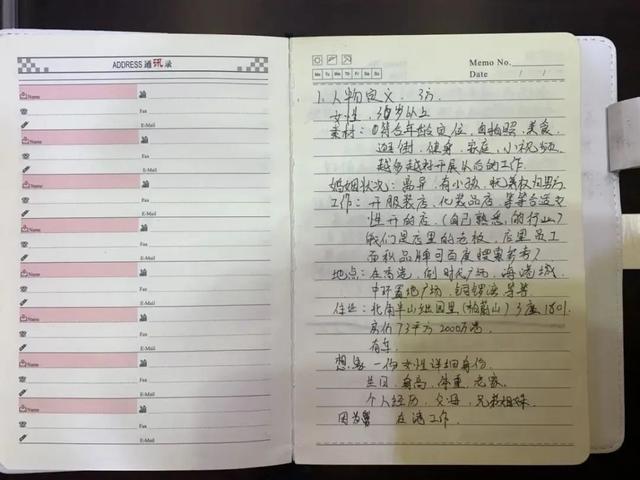 ADDRESS 通讯录
Name
Fax
E-Mail
Name
Fax
E-Mail
Name
Fax
E-Mail
Name
Fax
E-Mail
Name
Fax
E-Mail
Name
Fax
E-Mail
Name
Fax
E-Mail
Name
Fax
E-Mail
Memo No.
Mo Tu We Th Fr Sa Su
Date / /
1. 人物定义.
女性, 30岁以上
素材: ①符合年龄定位, 自拍照, 美食,
逛街, 健身, 家庭, 小视频
越多越好开展以后的工作.
婚姻状况: 离异, 有小孩, 抚养权归男方
工作: 开服装店, 化妆品店, 等等合适女
性开的店. (自己熟悉的行业)
我们是店里的老板, 店里员工
面积品牌可百度搜索参考)
地点: 在香港, 例时代广场, 海港城,
中环置地广场, 铜锣湾 等等
住址: 北角半山 3座 1801.
房价73平方 2000万港.
有车.
想象 一份女性详细身份.
生日, 身高, 体重, 老家.
个人经历, 父母, 兄弟姐妹.
因为 在港工作.